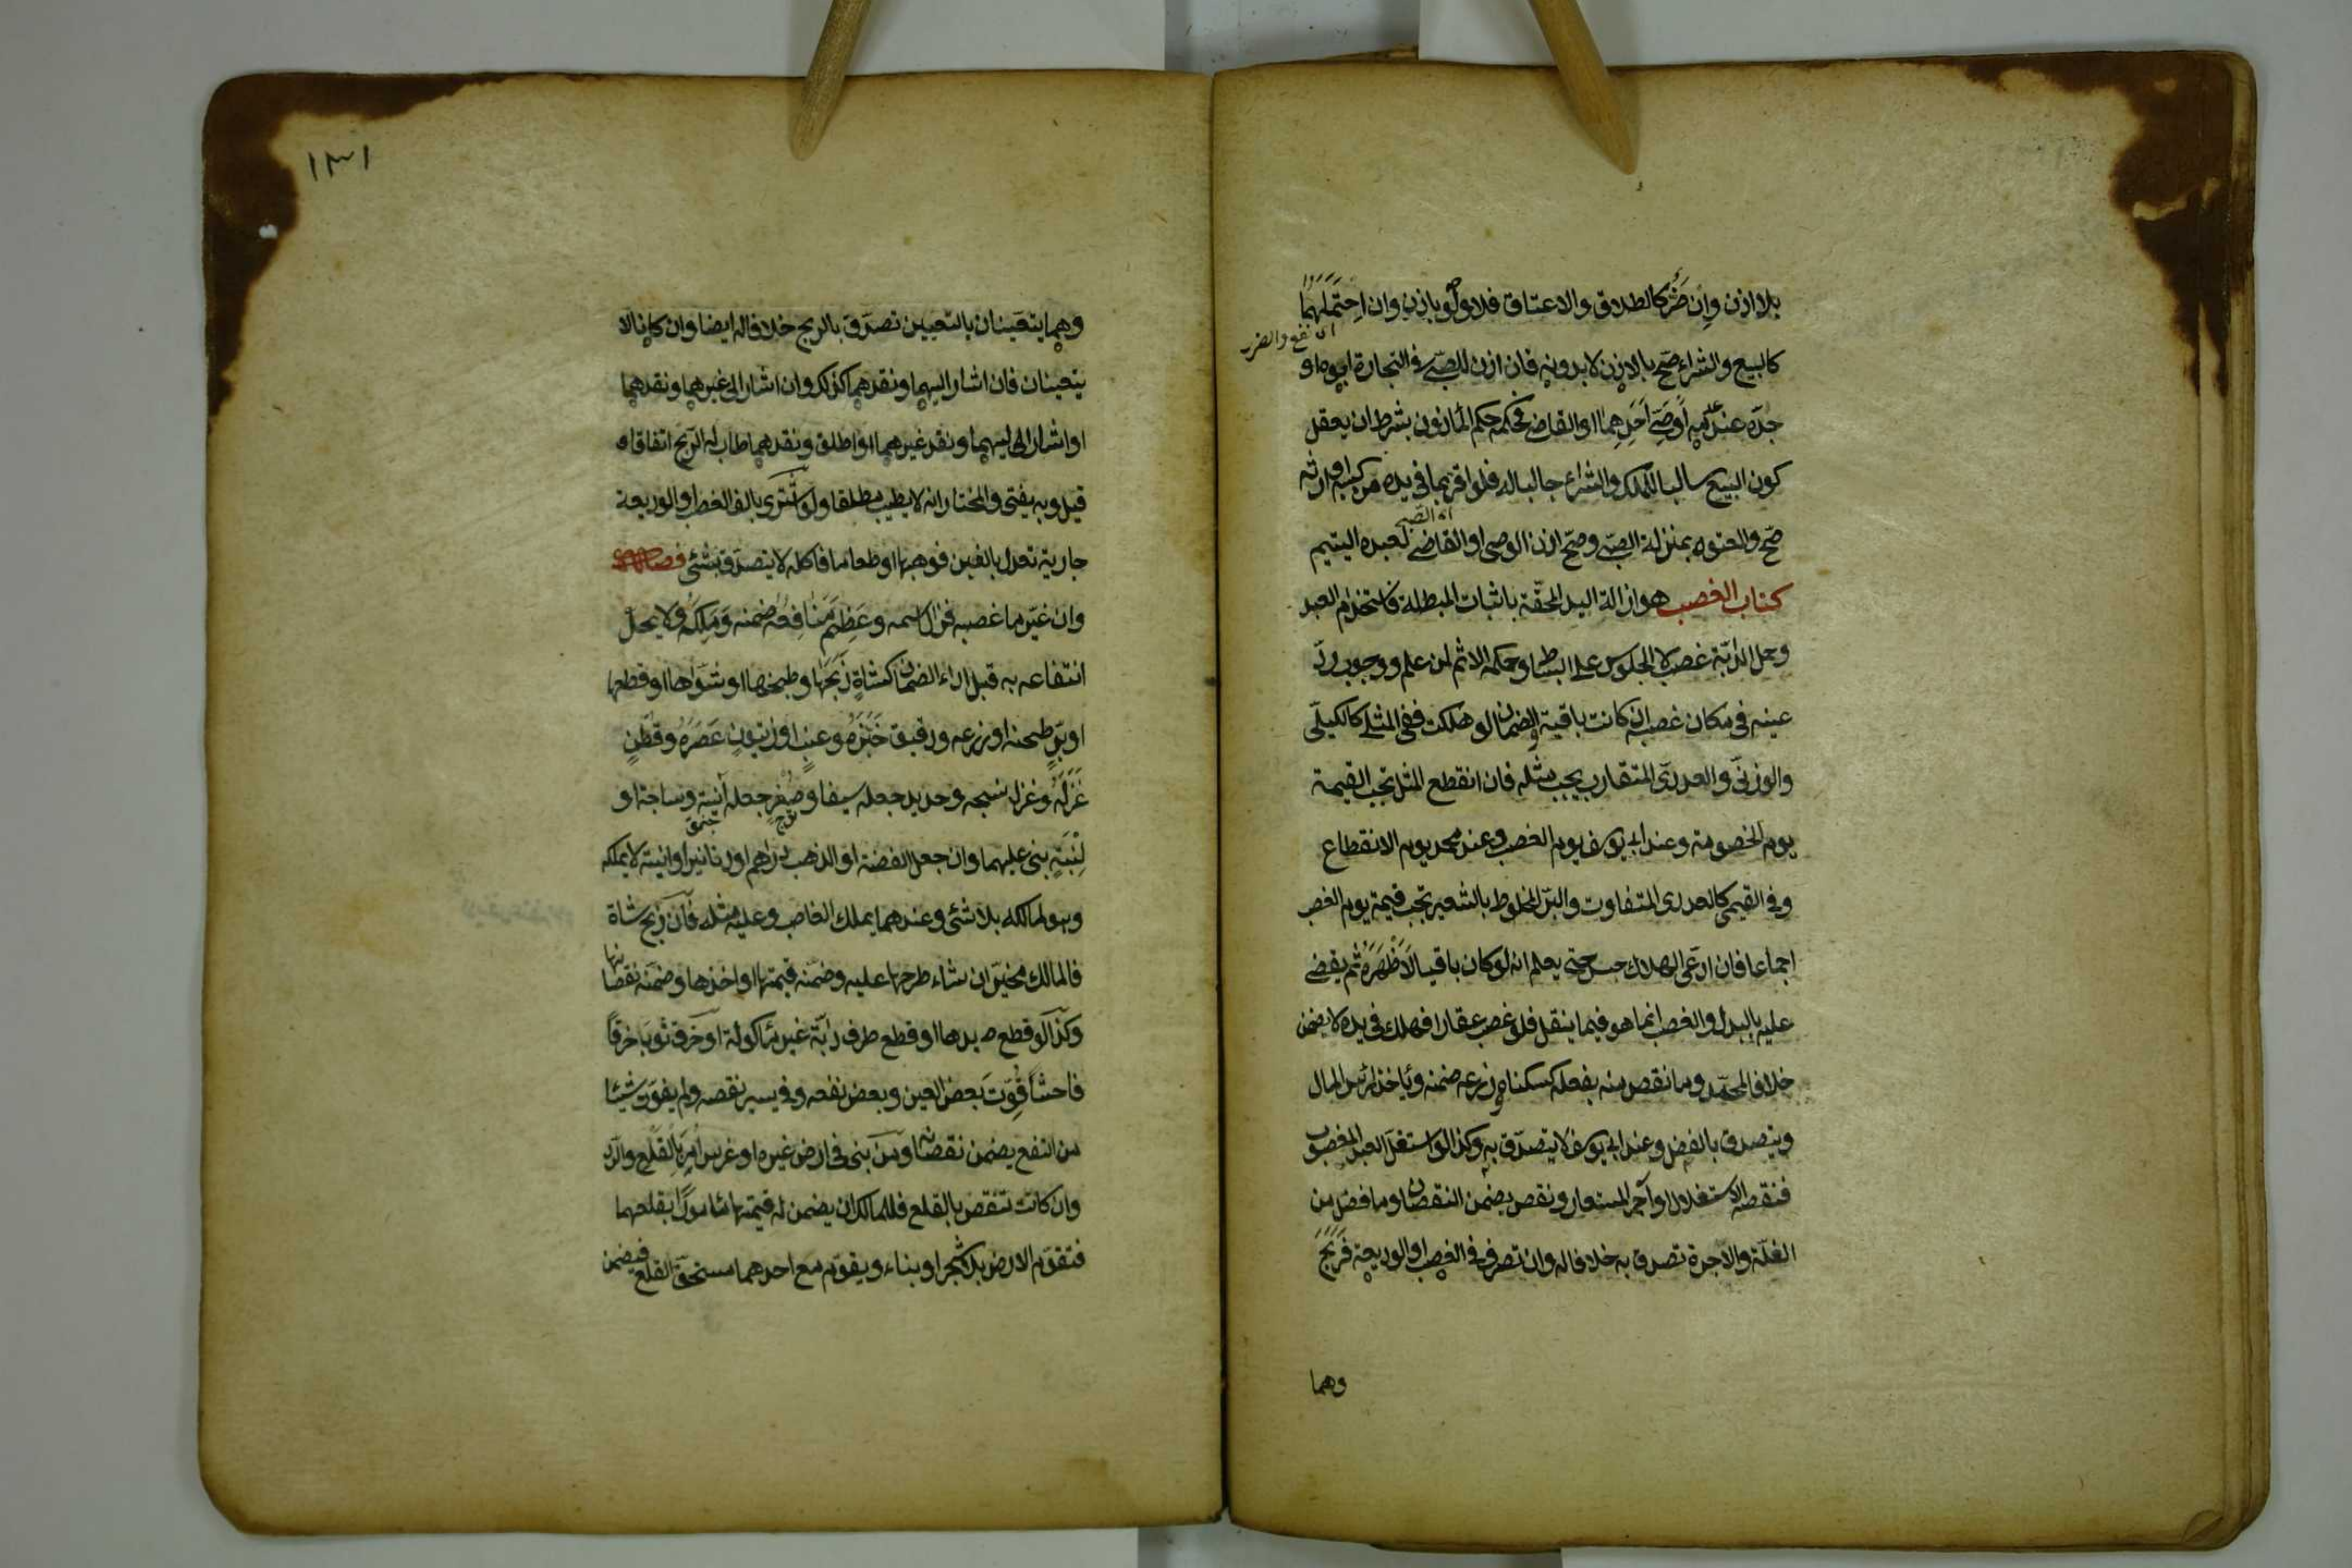 بلا اذن وان ضرّ كالطلاق والاعتاق فلا ولو باذن وان احتملهما
اى نفع والضرر
كالبيع والشراء صحّ بالاذن لا بدونه فان اذن للصبّى فى التجارة ابوه او
جدّه عند عدمه او وصىّ احدهما او القاضى فحكمه حكم المأذون بشرط ان يعقل
كون البيع سالبا للملك والشراء جالبا له فلو اقر بما فى يده من كسبه او ارثه
صحّ والمعتوه بمنزلة الصبّى وصحّ اذن الوصى او القاضى لعبده اليتيم
كتاب الغصب هو ازالة اليد المحقّة باثبات المبطلة فاستخدام العبد
وحمل الدابّة غصب لا الجلوس على البساط وحكمه الاثم لمن علم ووجوب ردّ
عينه فى مكان غصبه ان كانت باقية والضمان لو هلكت ففى المثلى كالكيلّى
والوزنىّ والعددىّ المتقارب يجب مثله فان انقطع المثل تجب القيمة
يوم الخصومة وعند ابى يوسف يوم الغصب وعند محمد يوم الانقطاع
وفى القيمى كالعددى المتفاوت والبرّ المخلوط بالشعير تجب قيمته يوم الغصب
اجماعا فان ادعى الهلاك حبس حتى يعلم انه لو كان باقيا لاظهره ثم يقضى
عليه بالبدل والغصب انما هو فيما ينقل فلو غصب عقارا فهلك فى يده لا يضمن
خلافا لمحمّد وما نقص منه بفعله كسكناه وزرعه ضمنه ويأخذ رأس المال
ويتصدق بالفضل وعند ابى يوسف لا يتصدّق به وكذا لو استغلّ العبد المغصوب
فنقصه الاستغلال او آجر المستعار ونقص يضمن النقصان وما فضل من
الغلّة والاجرة تصدق به خلافا له وان تصرف فى الغصب او الوديعة فربح
وهما
١٣١
وهما يتعينان بالتعيين تصدّق بالربح خلافا له ايضا وان كانا لا
يتعينان فان اشار اليهما ونقدهما كذلك وان اشار الى غيرهما ونقدهما
او اشار اليهما ونقد غيرهما او اطلق ونقدهما طاب له الربح اتفاقا و
قيل وبه يفتى والمختار انه لا يطيب مطلقا ولو اشترى بالف الغصب او الوديعة
جارية تعدل بالفين فوهبها او طعاما فاكله لا يتصدّق بشئ فصل
وان غيّر ما غصبه فزال اسمه وعظم منافعه ضمنه وملكه ولا يحل
انتفاعه به قبل اداء الضمان كشاة ذبحها وطبخها او شواها او قطعها
او برّ طحنه او زرعه ودقيق خبزه وعنب او زيتون عصره وقطن
غزله وغزل نسجه وحديد جعله سيفا وصفر جعله آنية وساجة او
لبنة بنى عليهما وان جعل الفضة او الذهب دراهم او دنانير او انية لا يملكه
وهو لمالكه بلا شئ وعندهما يملك الغاصب وعليه مثله فان ذبح شاة
فالمالك مخيّر ان شاء طرحها عليه وضمنه قيمتها او اخذها وضمنه نقصانها
وكذا لو قطع يدها او قطع طرف دابّة غير مأكولة او خرق ثوبا خرقا
فاحشا فوّت بعض العين وبعض نفعه وفى يسير نقصه ولم يفوت شيئا
من النفع يضمن نقصانه ومن بنى فى ارض غيره او غرس امر بالقلع والرد
وان كانت تنقص بالقلع فللمالك ان يضمن له قيمتهما مأمورا بقلعهما
فتقوّم الارض بلا شجر او بناء ويقوّم مع احدهما مستحقّ القلع فيضمن